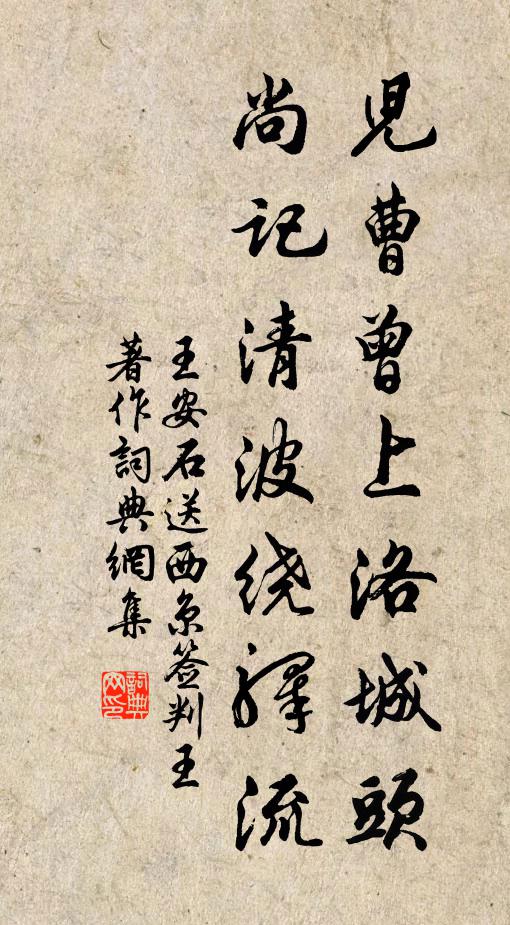 児曹曾上洛城頭
尚记清波绕驛流
王安石送西京签判王
著作詞典網集
詞典網印